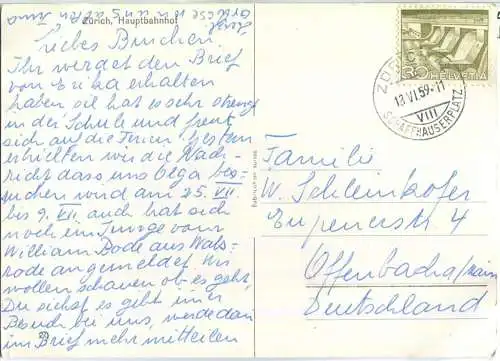 Zürich, Hauptbahnhof
Liebes Bruchen.
Ihr werdet den Brief
von Erika erhalten
haben sie hat es sehr streng
in der Schule und freut
sich auf die Ferien. Gestern
erhielten wir die Nach-
richt dass uns Olga be-
suchen wird am 25. VII
bis 9. auch hat sich
noch ein Junge von
William Bode aus Wals-
rode angemeldet. Wir
wollen schauen ob es geht,
Du siehst es gibt immer
Besuch bei uns, werde dann
im Brief mehr mitteilen
HELVETIA
30
ZÜRICH
13.VI.59.-11
VIII
SCHAFFHAUSERPLATZ
Familie
W. Schleinkofer
Eupenerstr 4
Offenbach a/Main
Deutschland